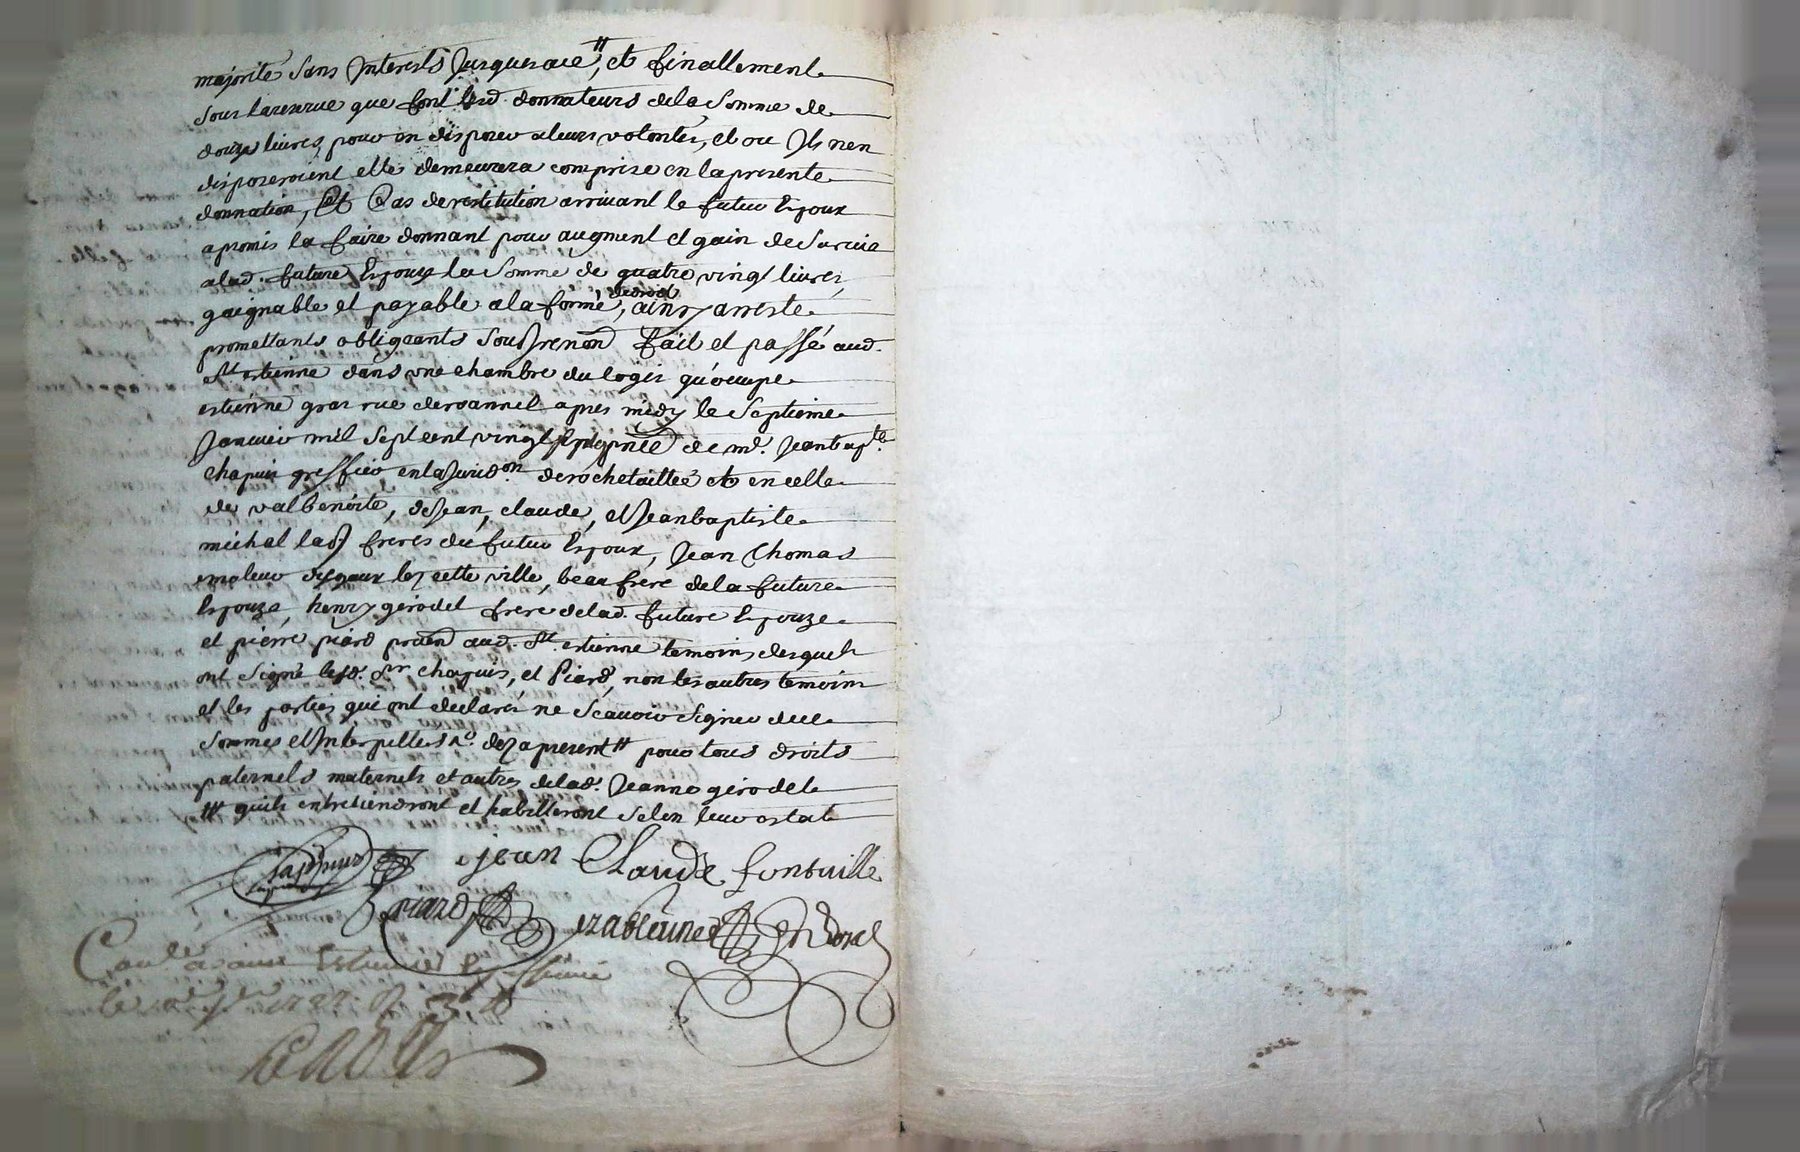 majorité sans Interests Jusques ace", et finallement
sous lareserue que font lesd. donnateurs dela somme de
douze liures pour en disposer aleurs volontés, et ou Ils nen
disposeroient elle demeurera comprise en lapresente
donnation, Et Cas derestitution arriuant le futur Espoux
apromis la faire donnant pour augment et gain desuruie
alad. future Espouze la somme de quatre vingt liures,
gaignable et payable ala forme dudroit, ainsy arresté
promettants obligeants soub renon fait et passé aud.
st estienne dans vne chambre du logis qu'occupe
estienne gras rue deroannel apres midy le septieme
Januier mil sept cent vingt sept pnce de me. Jeanbapte.
chapuis greffier enla Jurid.on derochetaillée et encelle
de valbenoite, de Jean, claude, et Jeanbaptiste
michal lad frères du futur Espoux, Jean Thomas
emoleur lez cette ville, beaufrere dela future
Espouze, henry girodet frere delad. future Espouze
et pierre piard praen aud. st. estienne temoins desquels
ont signé lesd. sr chapuis, et Piard, non les autres temoins
et les parties qui ont declaré ne scauoir signer de ce
sommés et Interpellés /. deza present # pour tous droits
paternels maternels et autres delad. Jeanne girodet
## quils entretiendront et habilleront selon leur estat
chapuis jean Claude fontuille
piard
Conlé a saint Estienne
le 1727